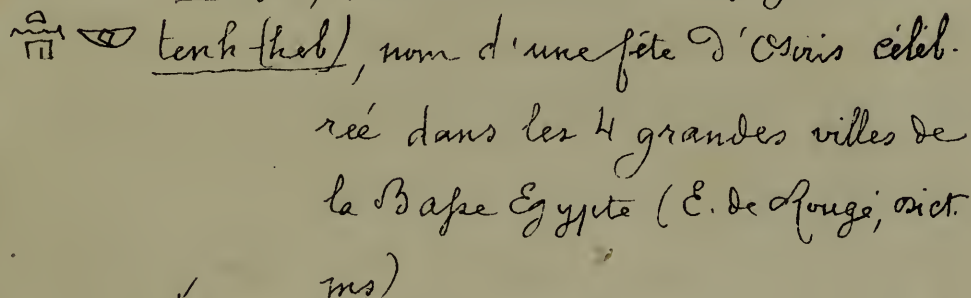 tenh (heb), nom d'une fête d'Osiris céléb-
rée dans les 4 grandes villes de
la Basse Egypte (E. de Rougé, dict.
ms)